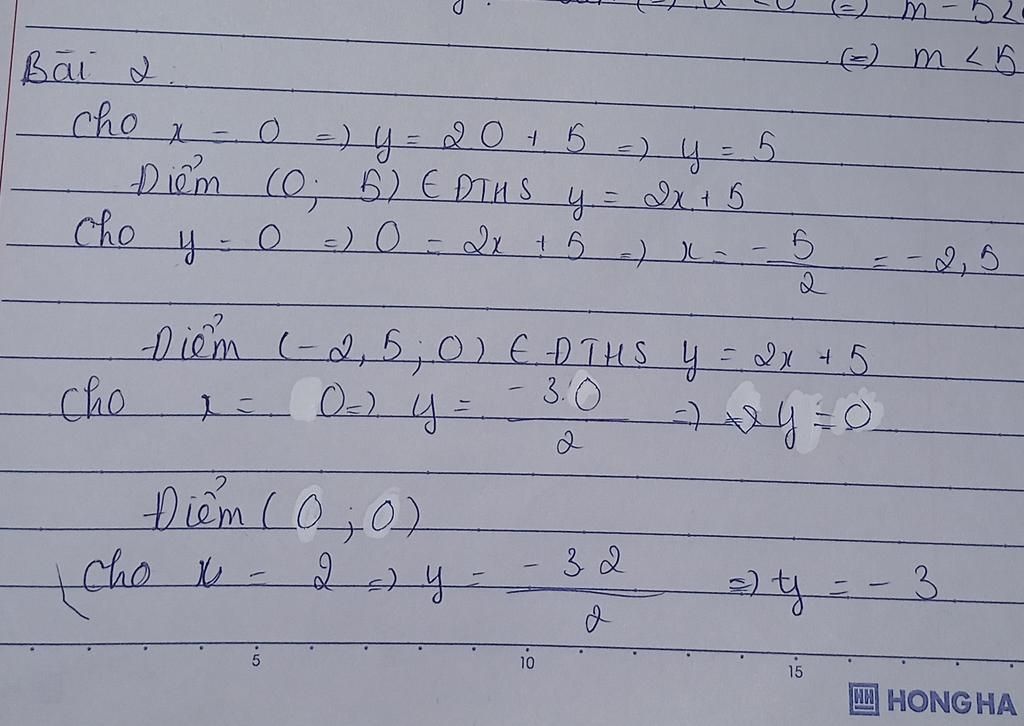 (=) m - 5 <
(=) m < 5
Bài 2.
Cho x = 0 =) y = 20 + 5 =) y = 5
Điểm (0; 5) ∈ ĐTHS y = 2x + 5
Cho y = 0 =) 0 = 2x + 5 =) x = -5/2 = -2,5
Điểm (-2,5; 0) ∈ ĐTHS y = 2x + 5
Cho x = 0 =) y = -3.0/2 =) y = 0
Điểm (0; 0)
Cho x = 2 =) y = -3 2/2 =) y = -3
5 10 15
HH HONG HA